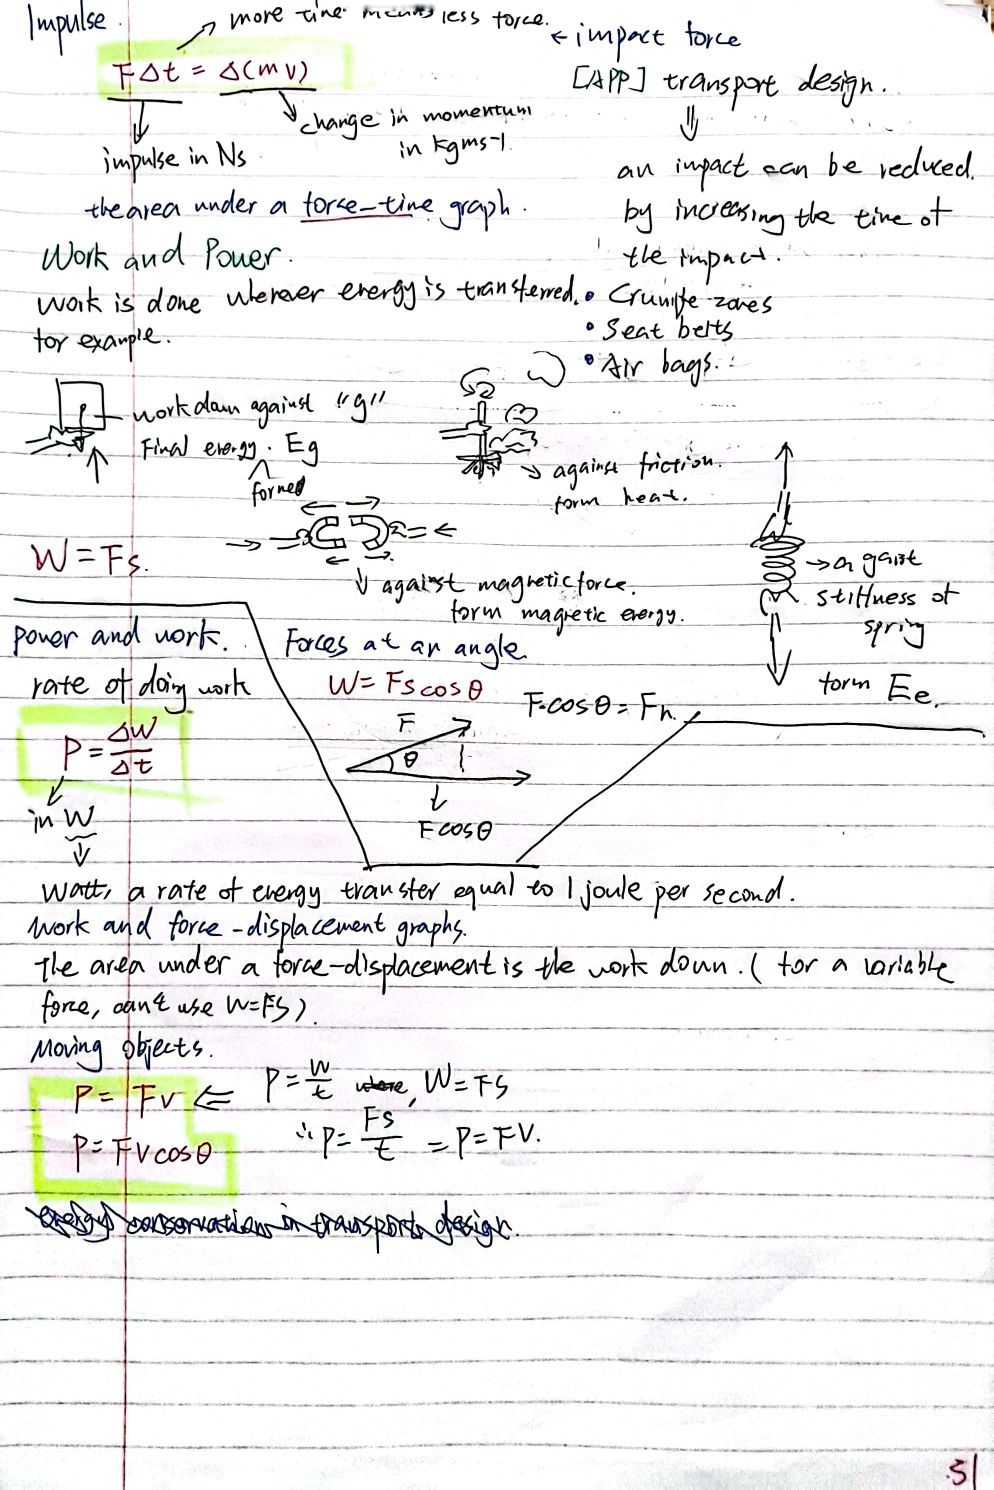 Impulse.
more time means less force.
FΔt = Δ(mv)
impulse in Ns
change in momentum
in kgms-1.
the area under a force-time graph.
← impact force
[APP] transport design.
⇓
an impact can be reduced.
by increasing the time of
the impact.
• Crumple zones
• Seat belts
• Air bags.
Work and Power.
Work is done wherever energy is transferred.
for example.
work down against "g"
Final energy. Eg
formed
against friction.
form heat.
against magnetic force.
form magnetic energy.
→ a gaist
stiffness of
spring
form Ee.
W = Fs.
power and work.
rate of doing work
P = ΔW/Δt
in W
Forces at an angle.
W = Fs cosθ
F·cosθ = Fh.
F
θ
Fcosθ
Watt, a rate of energy transfer equal to 1 joule per second.
Work and force-displacement graphs.
The area under a force-displacement is the work down. (for a variable
force, can't use W=Fs).
Moving objects.
P = Fv ⇐ P = W/t where, W = Fs
∴ P = Fs/t = P = FV.
P = FVcosθ
energy conservation in transport design.
51